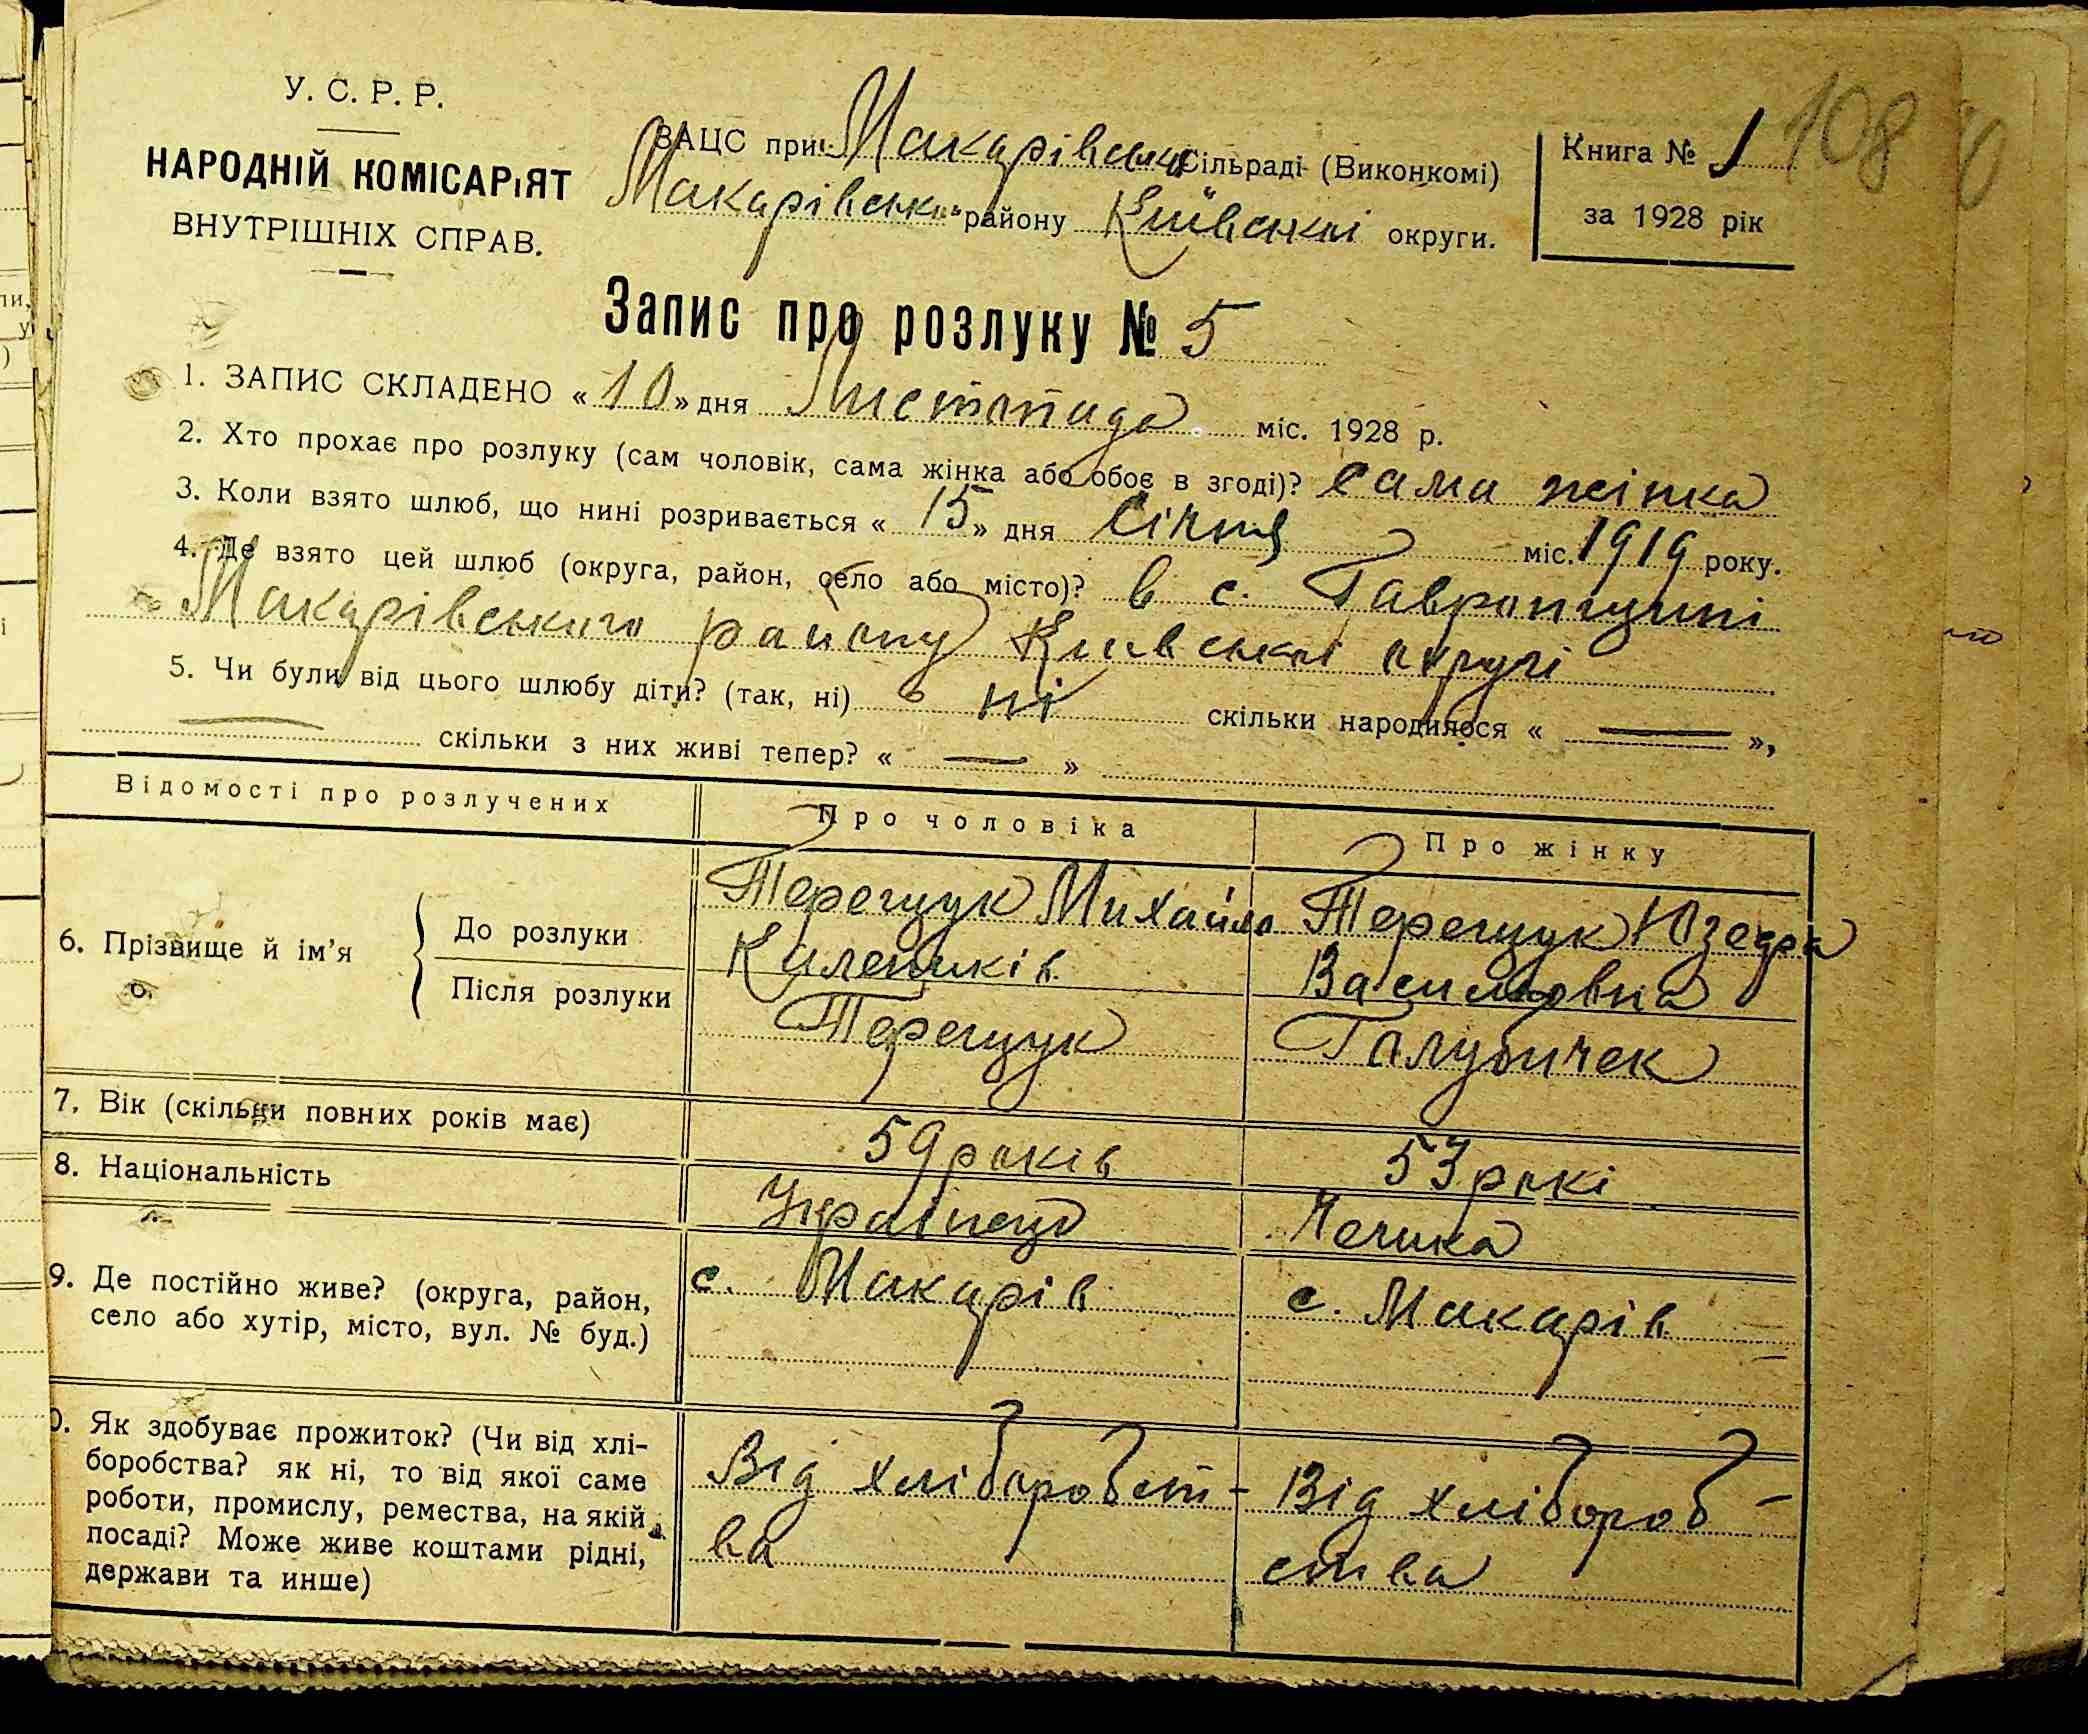 У. С. Р. Р.
НАРОДНІЙ КОМІСАРІЯТ
ВНУТРІШНІХ СПРАВ.
ЗАЦС при Макарівській Сільраді (Виконкомі)
Макарівсько району Київської округи.
Книга № 1
за 1928 рік
108
Запис про розлуку № 5
1. ЗАПИС СКЛАДЕНО « 10 » дня Листопада міс. 1928 р.
2. Хто прохає про розлуку (сам чоловік, сама жінка або обоє в згоді)? сама жінка
3. Коли взято шлюб, що нині розривається « 15 » дня Січня міс. 1919 року.
4. Де взято цей шлюб (округа, район, село або місто)? в с. Гавронщині
Макарівського району Київської округі
5. Чи були від цього шлюбу діти? (так, ні) ні скільки народилося « — »,
— скільки з них живі тепер? « — »
Відомості про розлучених Про чоловіка Про жінку
6. Прізвище й ім'я
До розлуки Терещук Михайло Терещук Юзефа
Василовна
Після розлуки Терещук Галубичек
7. Вік (скільки повних років має) 59 років 53 рокі
8. Національність Українець Чешка
9. Де постійно живе? (округа, район,
село або хутір, місто, вул. № буд.) с. Макарів с. Макарів
0. Як здобуває прожиток? (Чи від хлі-
боробства? як ні, то від якої саме
роботи, промислу, ремества, на якій
посаді? Може живе коштами рідні,
держави та инше)
Від хліборобст-
ва
Від хлібороб-
ства